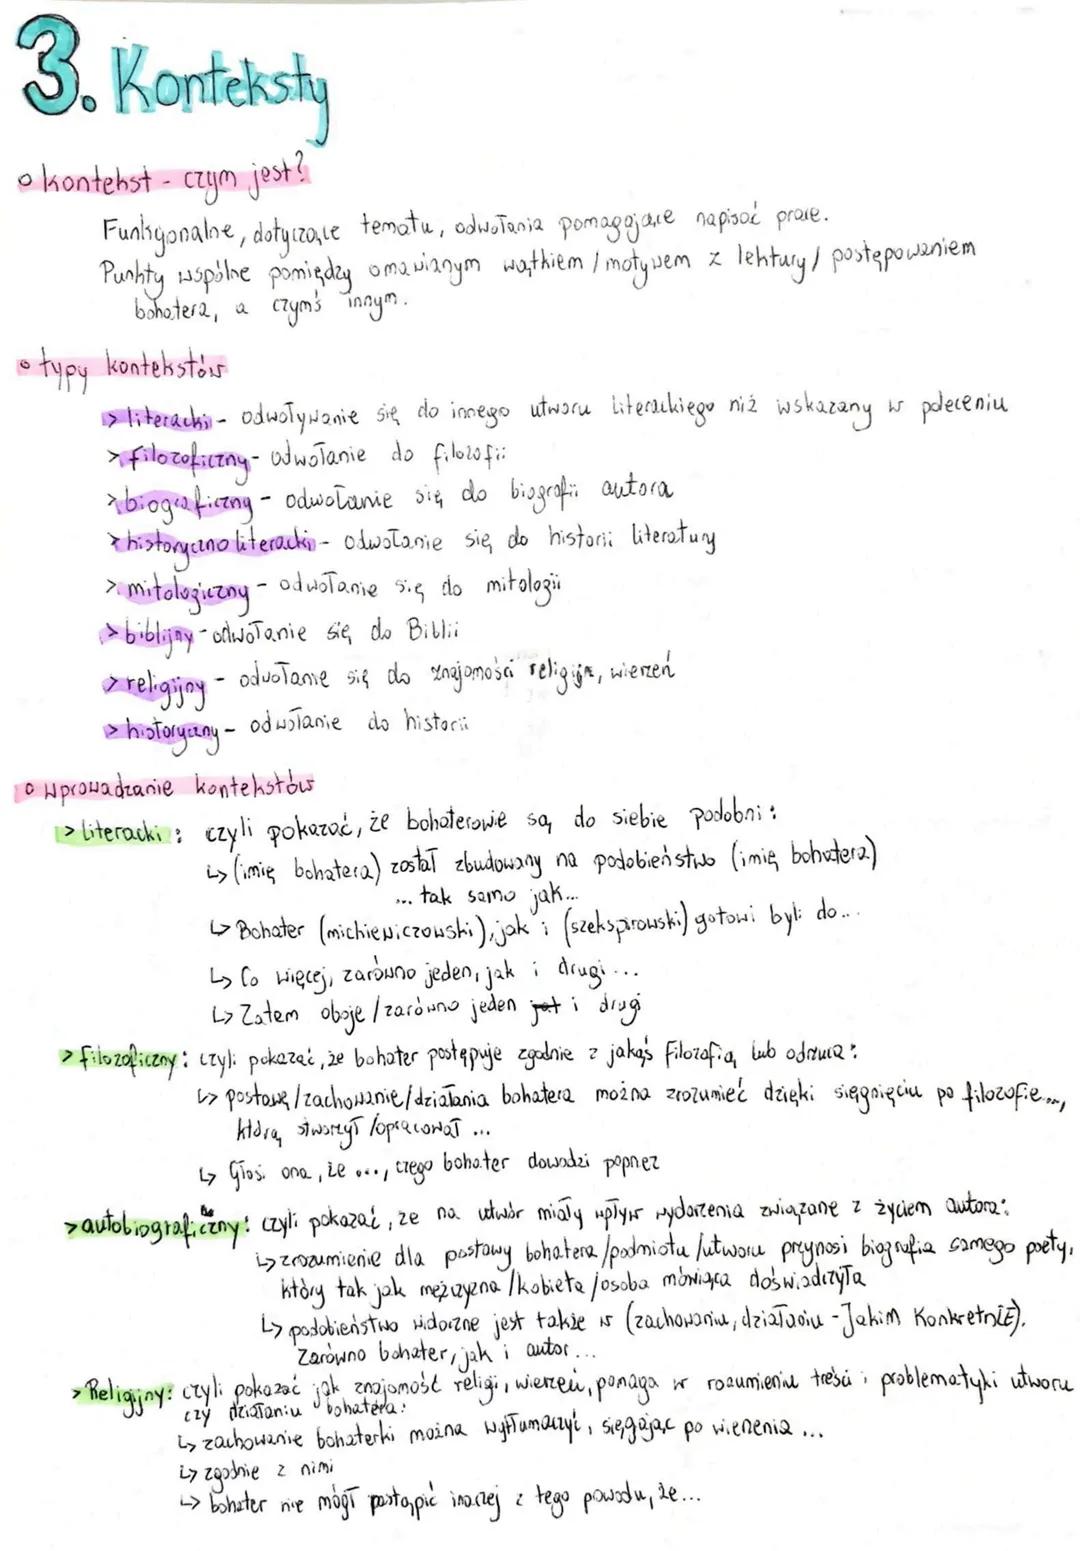 3. Konteksty
o kontekst - czym jest?
Funkcjonalne, dotyczące tematu, odwołania pomagające napisać pracę.
Punkty wspólne pomiędzy omawianym wątkiem / motywem z lektury / postępowaniem
bohatera, a czymś innym.
o typy kontekstów
> literacki - odwoływanie się do innego utworu literackiego niż wskazany w poleceniu
> filozoficzny - odwołanie do filozofii
> biograficzny - odwołanie się do biografii autora
> historyczno literacki - odwołanie się do historii literatury
> mitologiczny - odwołanie się do mitologii
> biblijny - odwołanie się do Biblii
> religijny - odwołanie się do znajomości religijn, wierzeń
> historyczny - odwołanie do historii
o wprowadzanie kontekstów
> literacki: czyli pokazać, że bohaterowie są do siebie podobni:
↳ (imię bohatera) został zbudowany na podobieństwo (imię bohatera)
... tak samo jak...
↳ Bohater (mickiewiczowski), jak i (szekspirowski) gotowi byli do...
↳ Co więcej, zarówno jeden, jak i drugi ...
↳ Zatem oboje / zarówno jeden jak i drugi
> filozoficzny: czyli pokazać, że bohater postępuje zgodnie z jakąś filozofią lub odrzuca:
↳ postawę / zachowanie / działania bohatera można zrozumieć dzięki sięgnięciu po filozofie...,
którą stworzył / opracował ...
↳ Głosi ona, że ..., czego bohater dowodzi poprzez
> autobiograficzny: czyli pokazać, że na utwór miały wpływ wydarzenia związane z życiem autora:
↳ zrozumienie dla postawy bohatera / podmiotu / utworu przynosi biografia samego poety,
który tak jak mężczyzna / kobieta / osoba mówiąca doświadczyła
↳ podobieństwo widoczne jest także w (zachowaniu, działaniu - JakiM KonkretnIE).
Zarówno bohater, jak i autor...
> Religijny: czyli pokazać jak znajomość religi, wierzeń, pomaga w rozumieniu treści i problematyki utworu
czy działaniu bohatera:
↳ zachowanie bohaterki można wytłumaczyć, sięgając po wierzenia ...
↳ zgodnie z nimi
↳ bohater nie mógł postąpić inaczej z tego powodu, że...